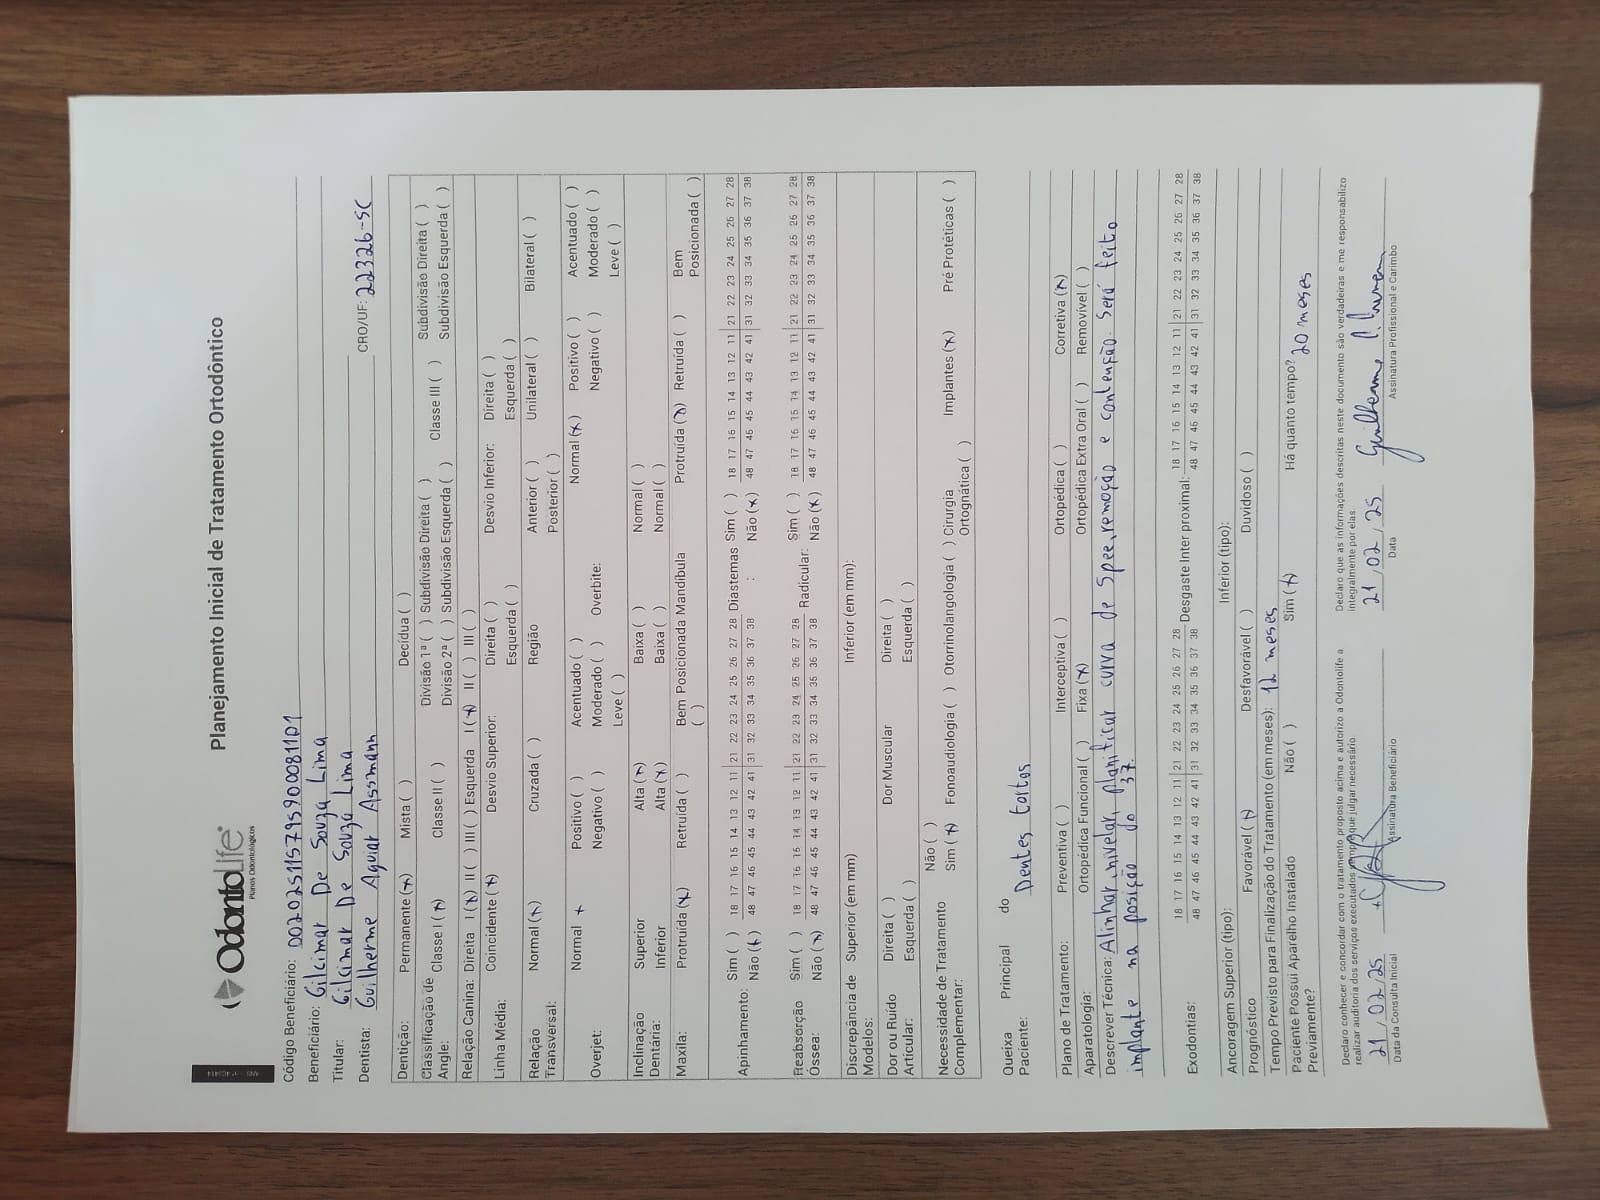 OdontoLife
Planos Odontológicos
Planejamento Inicial de Tratamento Ortodôntico
Código Beneficiário: 00202511579590081101
Beneficiário: Gilcimar De Souza Lima
Titular: Gilcimar De Souza Lima
Dentista: Guilherme Aguiar Assmann CRO/UF: 22326-SC
Dentição: Permanente (x) Mista ( ) Decídua ( )
Classificação de Angle: Classe I (x) Classe II ( ) Divisão 1ª ( ) Subdivisão Direita ( ) Classe III ( ) Subdivisão Direita ( )
Divisão 2ª ( ) Subdivisão Esquerda ( ) Subdivisão Esquerda ( )
Relação Canina: Direita I (x) II ( ) III ( ) Esquerda I (x) II ( ) III ( )
Linha Média: Coincidente (x) Desvio Superior: Direita ( ) Desvio Inferior: Direita ( )
Esquerda ( ) Esquerda ( )
Relação Transversal: Normal (x) Cruzada ( ) Região Anterior ( ) Unilateral ( ) Bilateral ( )
Posterior ( )
Overjet: Normal x Positivo ( ) Acentuado ( ) Overbite: Normal (x) Positivo ( ) Acentuado ( )
Negativo ( ) Moderado ( ) Negativo ( ) Moderado ( )
Leve ( ) Leve ( )
Inclinação Dentária: Superior Alta (x) Baixa ( ) Normal ( )
Inferior Alta (x) Baixa ( ) Normal ( )
Maxila: Protruída (x) Retruída ( ) Bem Posicionada ( ) Mandíbula Protruída (x) Retruída ( ) Bem Posicionada ( )
Apinhamento: Sim ( ) 18 17 16 15 14 13 12 11 21 22 23 24 25 26 27 28 Diastemas : Sim ( ) 18 17 16 15 14 13 12 11 21 22 23 24 25 26 27 28
Não (x) 48 47 46 45 44 43 42 41 31 32 33 34 35 36 37 38 Não (x) 48 47 46 45 44 43 42 41 31 32 33 34 35 36 37 38
Reabsorção Óssea: Sim ( ) 18 17 16 15 14 13 12 11 21 22 23 24 25 26 27 28 Radicular: Sim ( ) 18 17 16 15 14 13 12 11 21 22 23 24 25 26 27 28
Não (x) 48 47 46 45 44 43 42 41 31 32 33 34 35 36 37 38 Não (x) 48 47 46 45 44 43 42 41 31 32 33 34 35 36 37 38
Discrepância de Modelos: Superior (em mm) Inferior (em mm):
Dor ou Ruído Articular: Direita ( ) Dor Muscular Direita ( )
Esquerda ( ) Esquerda ( )
Necessidade de Tratamento Complementar: Não ( )
Sim (x) Fonoaudiologia ( ) Otorrinolangologia ( ) Cirurgia Ortognática ( ) Implantes (x) Pré Protéticas ( )
Queixa Principal do Paciente: Dentes tortos
Plano de Tratamento: Preventiva ( ) Interceptiva ( ) Ortopédica ( ) Corretiva (x)
Aparatologia: Ortopédica Funcional ( ) Fixa (x) Ortopédica Extra Oral ( ) Removível ( )
Descrever Técnica: Alinhar, nivelar, planificar curva de Spee, remoção e contenção. Será feito
implante na posição do 37.
Exodontias: 18 17 16 15 14 13 12 11 21 22 23 24 25 26 27 28 Desgaste Inter proximal: 18 17 16 15 14 13 12 11 21 22 23 24 25 26 27 28
48 47 46 45 44 43 42 41 31 32 33 34 35 36 37 38 48 47 46 45 44 43 42 41 31 32 33 34 35 36 37 38
Ancoragem Superior (tipo): Inferior (tipo):
Prognóstico Favorável (x) Desfavorável ( ) Duvidoso ( )
Tempo Previsto para Finalização do Tratamento (em meses): 12 meses
Paciente Possui Aparelho Instalado Previamente? Não ( ) Sim (x) Há quanto tempo? 20 meses
Declaro conhecer e concordar com o tratamento proposto acima e autorizo a Odontolife a
realizar auditoria dos serviços executados sempre que julgar necessário.
Declaro que as informações descritas neste documento são verdadeiras e me responsabilizo
integralmente por elas.
21/02/25
Data da Consulta Inicial
Assinatura Beneficiário
21/02/25
Data
Assinatura Profissional e Carimbo